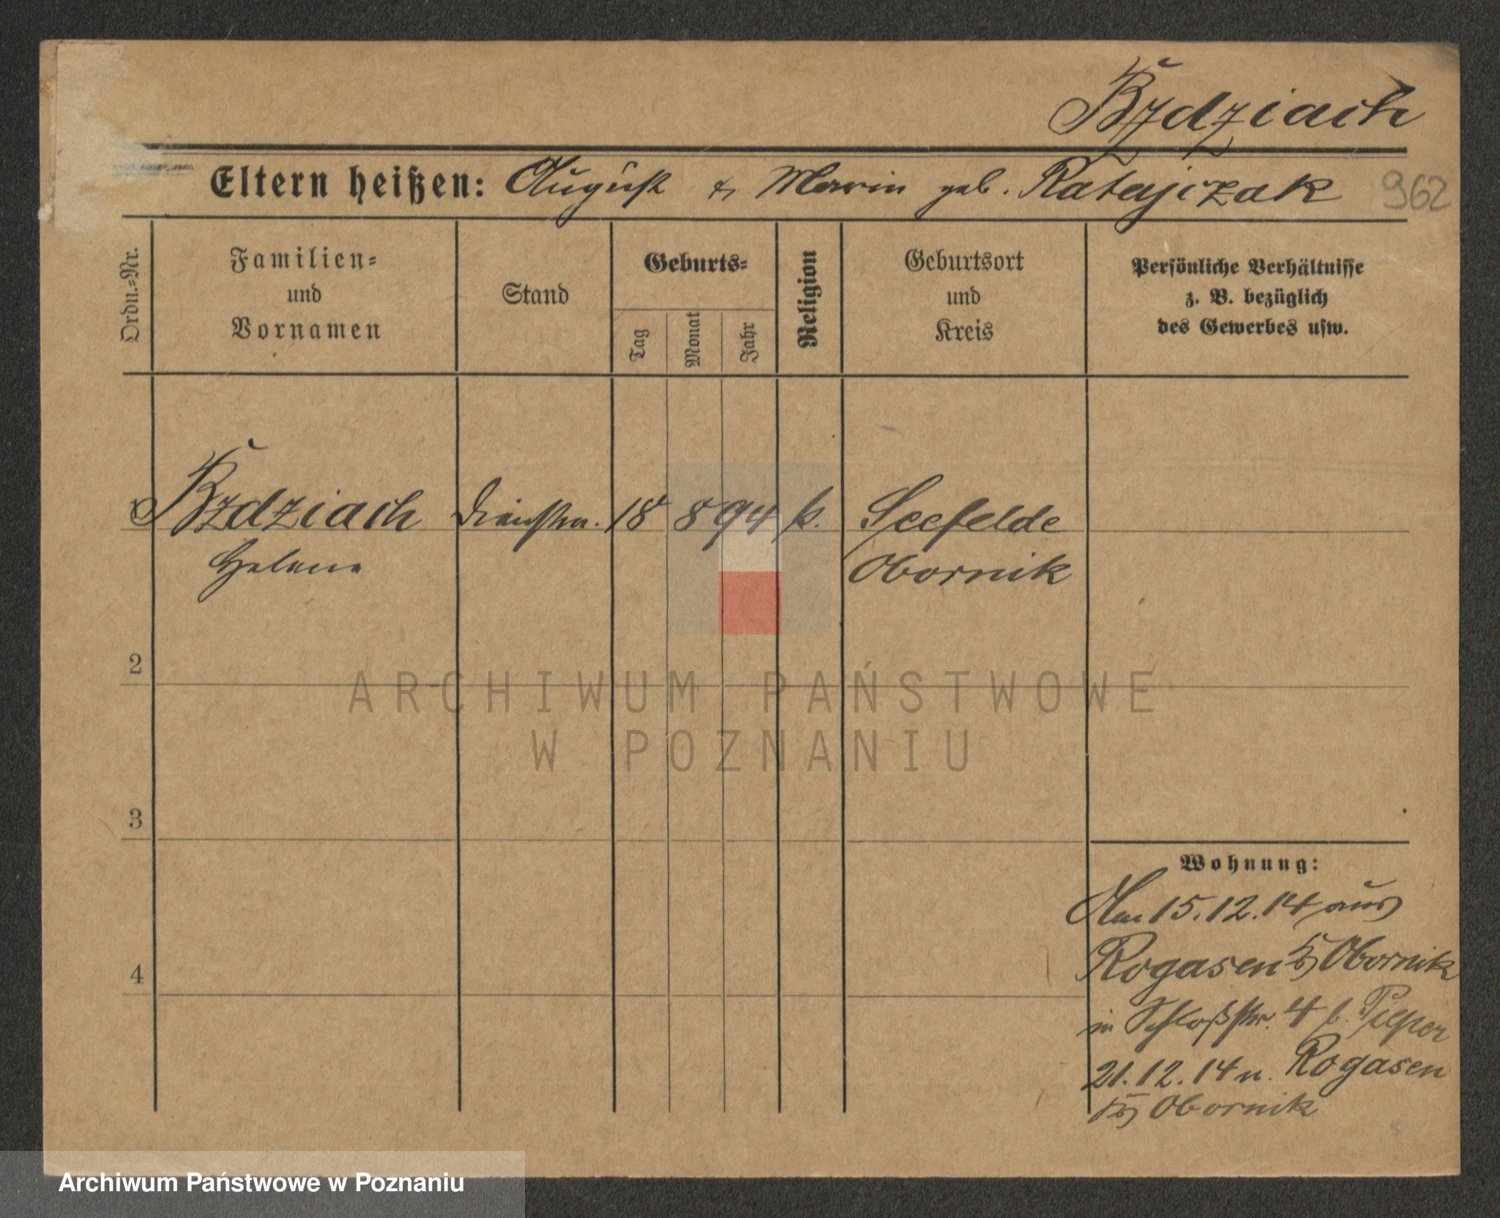 Bzdziach
Eltern heißen: August & Marie geb. Ratajczak 962
Ordn.-Nr.
Familien-
und
Vornamen
Stand
Geburts-
Tag
Monat
Jahr
Religion
Geburtsort
und
Kreis
Persönliche Verhältnisse
z. B. bezüglich
des Gewerbes usw.
Bzdziach Dienstm. 18 8 94 k. Seefelde
Helene Obornik
2
3
4
Wohnung:
Am 15.12.14 aus
Rogasen Kr Obornik
in Schloßstr. 4 b. Pieper
21.12.14 n. Rogasen
Kr Obornik
ARCHIWUM PAŃSTWOWE
W POZNANIU
Archiwum Państwowe w Poznaniu